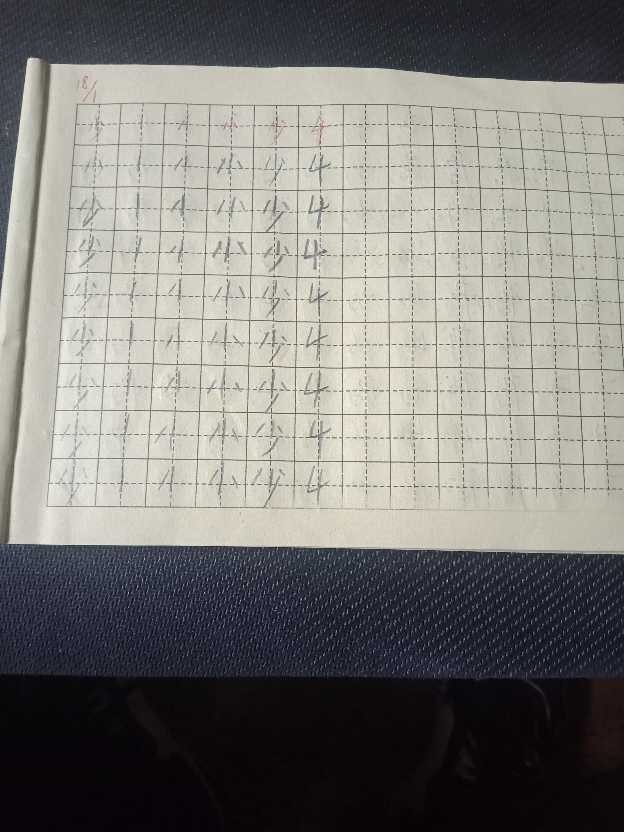 18/1
少 丨 小 少 4
小 丨 小 少 4
少 丨 小 少 4
少 丨 小 少 4
少 丨 小 少 4
少 丨 小 少 4
少 丨 小 少 4
少 丨 小 少 4
少 丨 小 少 4